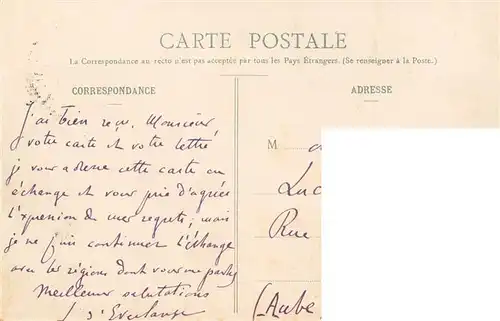 CARTE POSTALE
La Correspondance au recto n'est pas acceptée par tous les Pays Étrangers. (Se renseigner à la Poste.)
CORRESPONDANCE
J'ai bien reçu, Monsieur,
votre carte et votre lettre,
je vous adresse cette carte en
échange et vous prie d'agréer
l'expression de mes regrets, mais
je ne puis continuer l'échange
avec les régions dont vous me parlez
Meilleures salutations
ADRESSE
M
Luc
Rue
(Aube